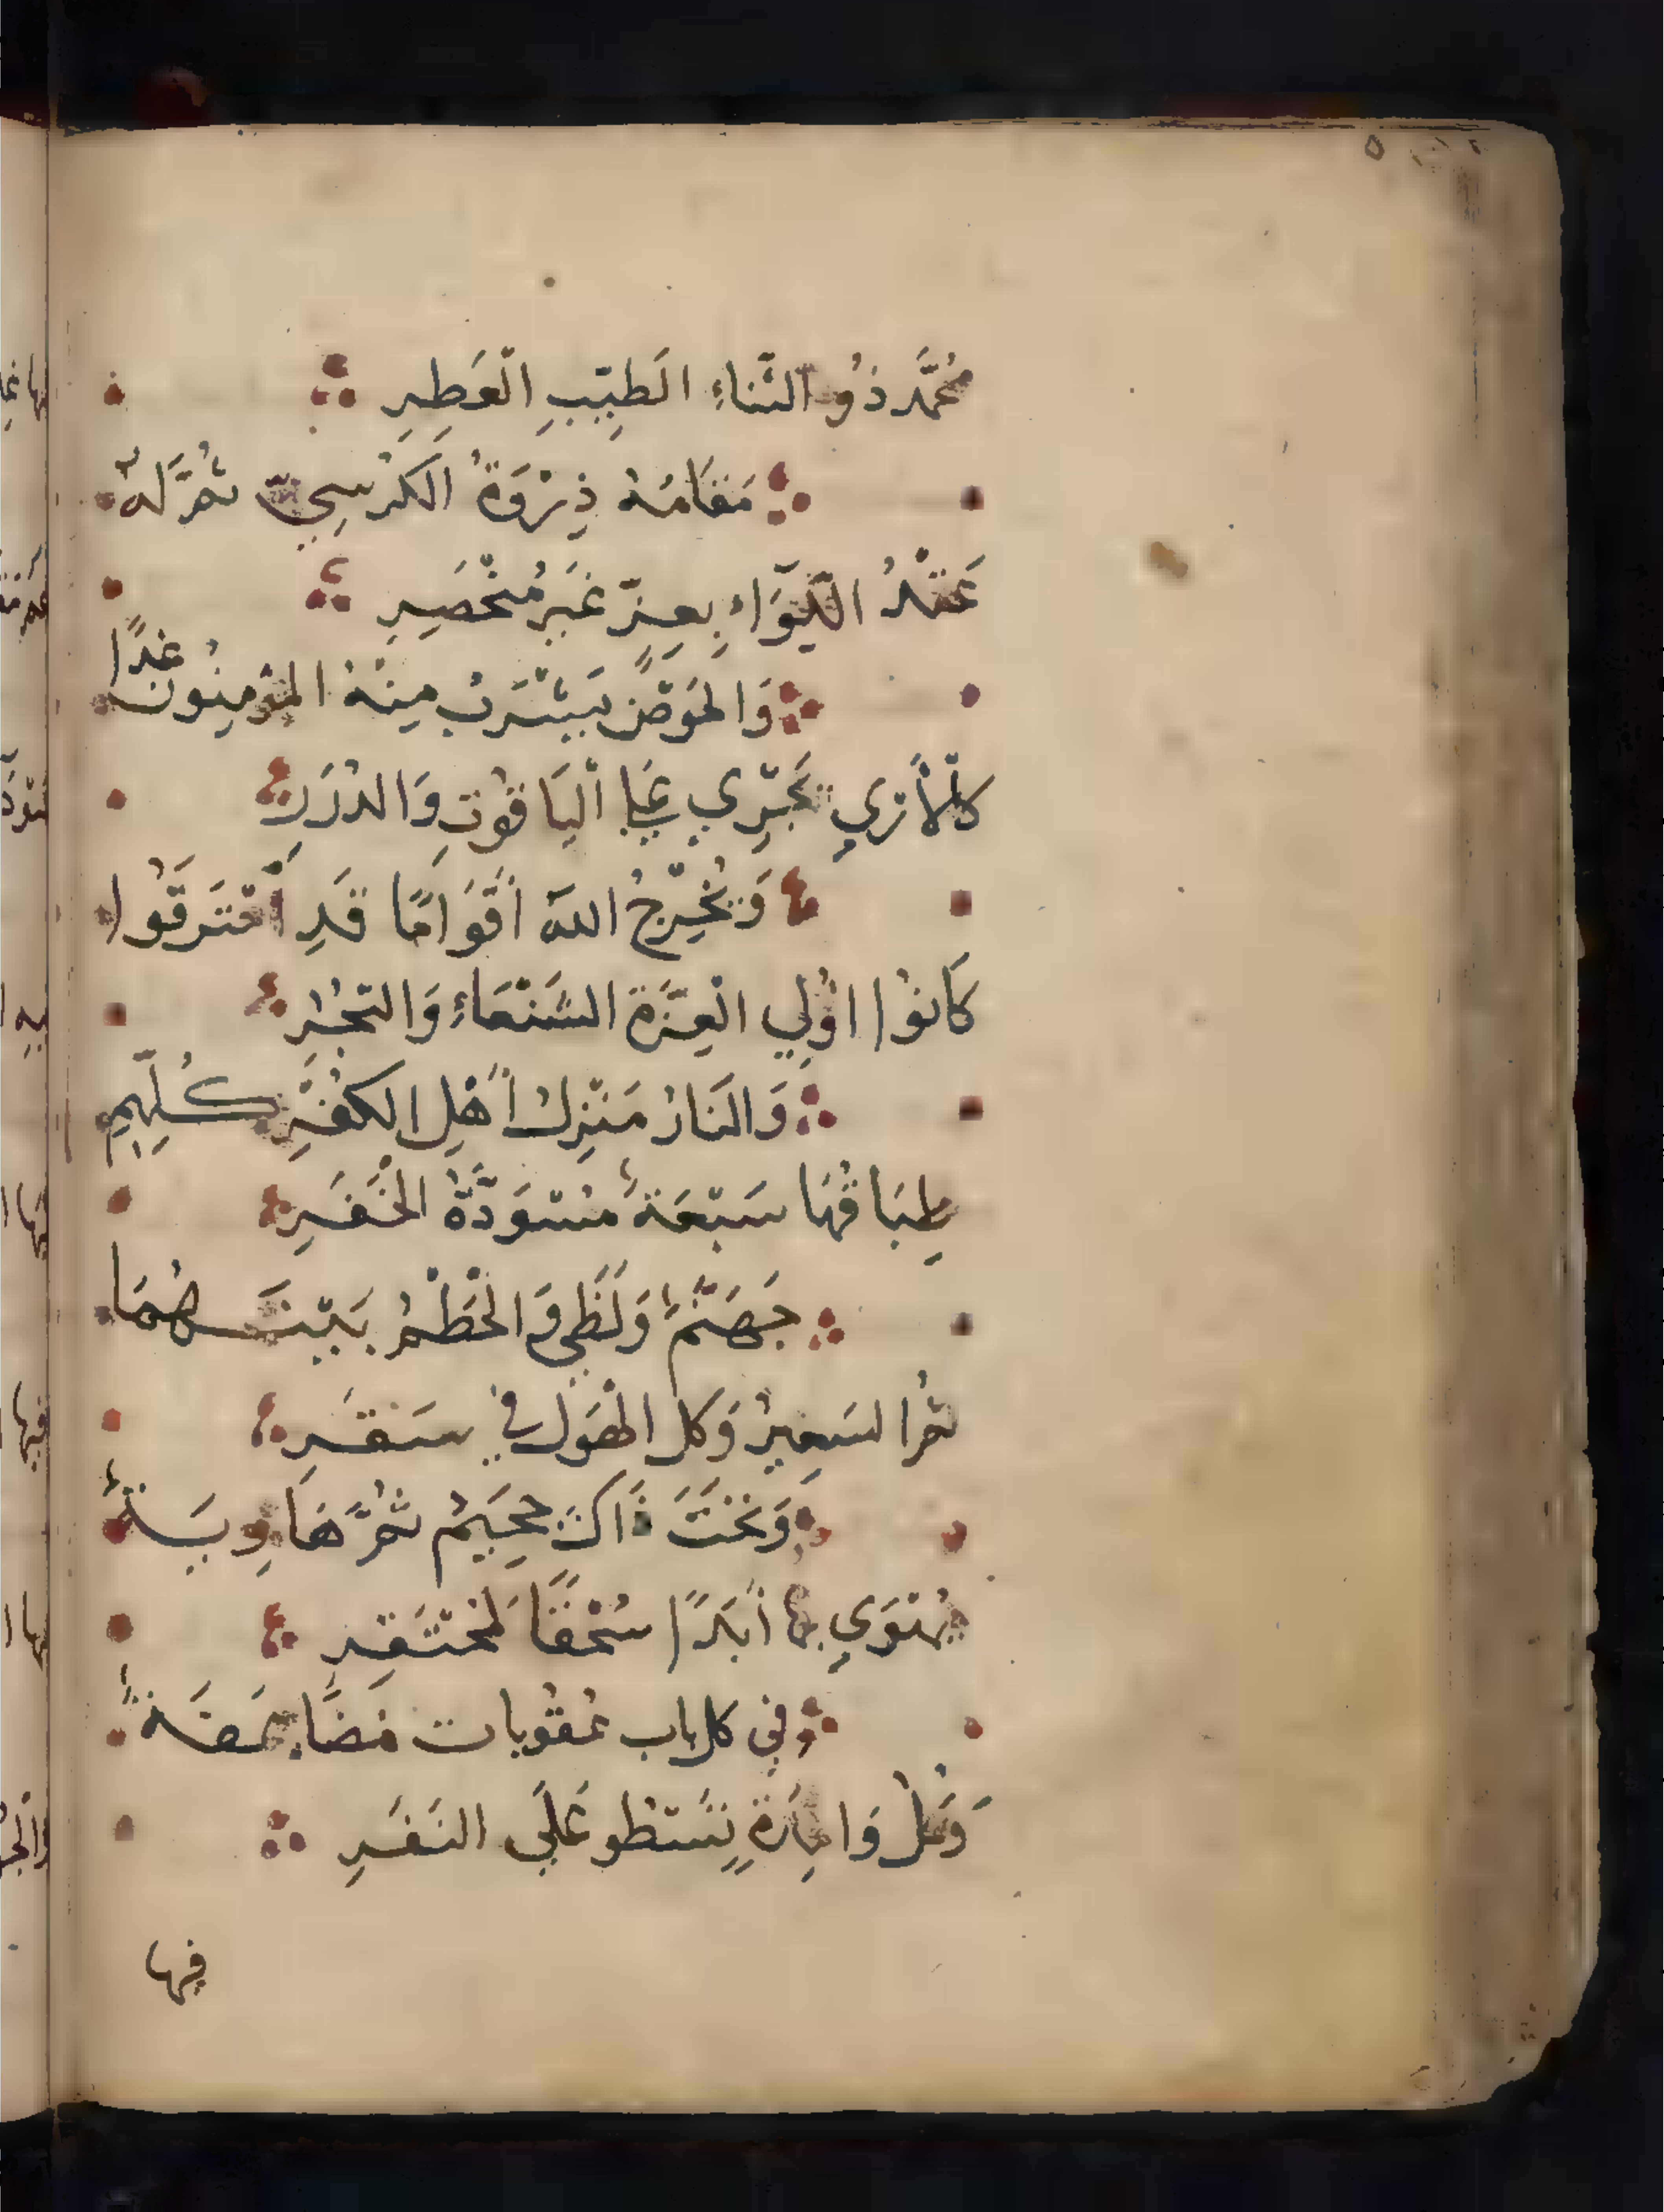 مُحَمَّد ذُو الثَّنَاءِ الطَيِّبِ الْعَطِرِ
مَقَامُهُ ذِرْوَةُ الكُرْسِيِّ ثُمَّ لَهُ
عَقْدُ اللِّوَاءِ بِعِزٍّ غَيْرِ مُنْحَصِرِ
وَالحَوْضُ يَشْرَبُ مِنْهُ المُؤمِنُونَ غَدًا
كَالْأَرْيِ يَجْرِي عَلَى الْيَاقُوتِ وَالدُرَرِ
وَيُخْرِجُ اللَّه أَقْوَامًا قَدِ احْتَرَقُوا
كَانُوا اوُلِي الْعِزَّةِ الشَنْعَاءِ وَالتَجُّرِ
وَالنَارُ مَنْزِلُ أَهْلِ الكُفْرِ كُلِّهِمِ
طِبَاقُهَا سَبْعَةٌ مُسْوَدَّةُ الْحُفَرِ
جَهَنَّمٌ وَلَظَى وَالْحَطْمُ بَيْنَهُمَا
ثُمَّ السَعِيرُ وَكل الْهَوَلِ فِي سَقَرِ
وَتَحْتَ ذَاكَ جَحِيمٌ ثُمَّ هَاوِيَةٌ
يَهْوَي بِهَا أَبَدًا سُحْقًا لِمُحْتَقَرِ
فِي كل باب عُقُوبات مُضَاعَفَةٌ
وَكُلُّ وَاحِدَةٍ تَسْطُو عَلَى النَفَرِ
فيها